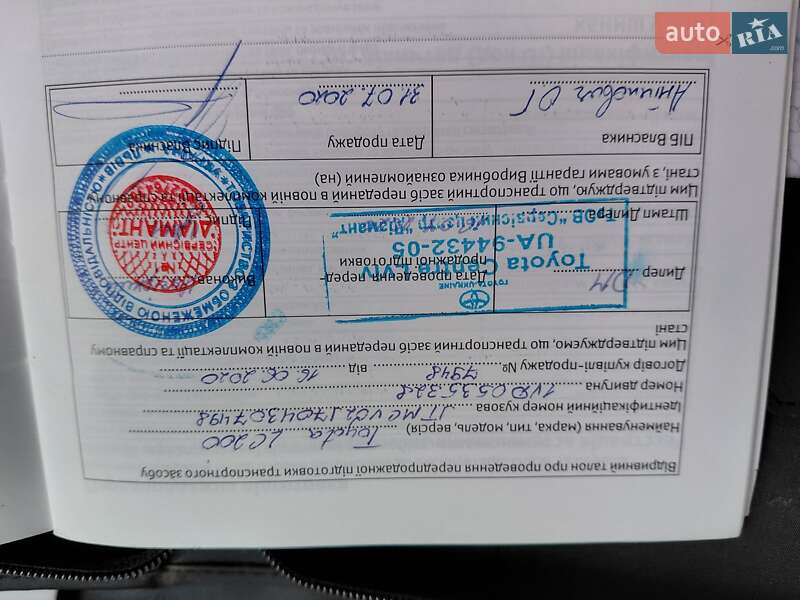 auto RIA .com
Відривний талон про проведення передпродажної підготовки транспортного засобу
Найменування (марка, тип, модель, версія) Toyota LC200
Ідентифікаційний номер кузова JTMCV02J704307498
Номер двигуна 1VD0535328
Договір купівлі-продажу № 7948 від 16.06.2020
Цим підтверджуємо, що транспортний засіб переданий в повній комплектації та справному
стані
Дилер
Дата проведення перед-
продажної підготовки
Виконав
Штамп Дилера
Підпис
TOYOTA-UKRAINE
Toyota Centre Lviv
UA-94432-05
ТОВ "Сервісний центр "Діамант"
ОБМЕЖЕНОЮ ВІДПОВІДАЛЬНІСТЮ
№1
СЕРВІСНИЙ ЦЕНТР
ДІАМАНТ
Цим підтверджую, що транспортний засіб переданий в повній комплектації та справному
стані, з умовами гарантії Виробника ознайомлений (на)
ПІБ Власника
Дата продажу 31.07.2020
Підпис Власника